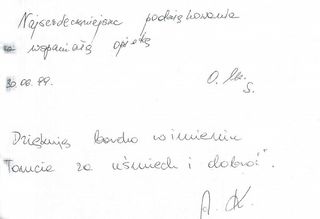 Najserdeczniejsze podziękowania
za wspaniałą opiekę
30.08.99.
S.
Dziękuję bardzo w imieniu
Tomcia za uśmiech i dobroć".
A. K.